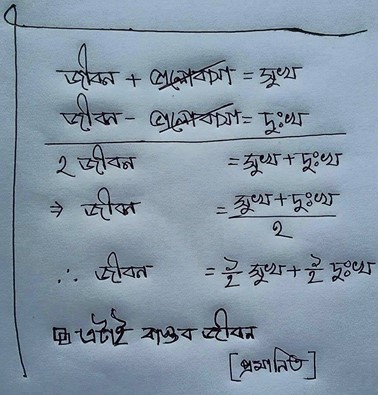 জীবন + ভালোবাসা = সুখ
জীবন - ভালোবাসা = দুঃখ
২ জীবন = সুখ + দুঃখ
⇒ জীবন = সুখ + দুঃখ / ২
∴ জীবন = ১/২ সুখ + ১/২ দুঃখ
এটাই বাস্তব জীবন
[প্রমানিত]